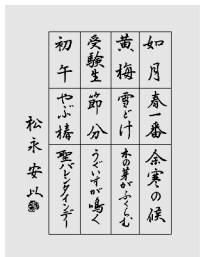 如月
春一番
余寒の候
黄梅
雪どけ
木の芽がふくらむ
受験生
節分
うぐいすが鳴く
初午
やぶ椿
聖バレンタインデー
松永安以